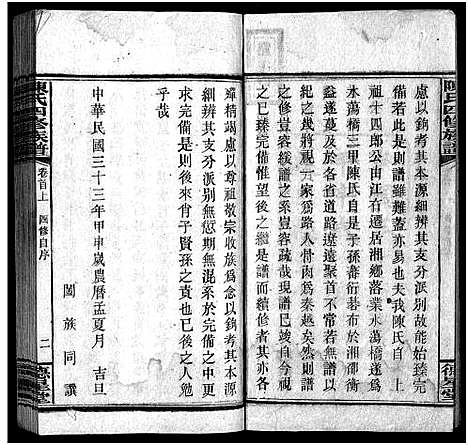 陳氏四修族譜
慮以鉤考其本源細辨其支分派別故能始終完
備若此是則譜雖難葢亦易也夫我陳氏自
祖十四郎公由江右遷居湘鄉落業永蕩橋遂名
永蕩橋三甲陳氏自是子孫蕃衍綦布於湘邵衡
益遂蔓延及於各省道路遼遠聚首不常若無譜
紀之幾將視一家為路人骨肉為秦越矣然則譜
之關於後嗣之系豈容疏哉現譜
之已臻完備惟望後之繼是譜而續修者
德星堂
殫精竭慮以尊祖敬宗收族為念以鉤考其本源
細辨其支分派別無愆期無混系於完備之中更
求完備是則有肖子賢孫之責也已後之人勉
乎哉
中華民國三十三年甲申歲農曆孟夏月 吉旦
闔族同譔
陳氏四修族譜
卷首上 四修自序
二
德星堂